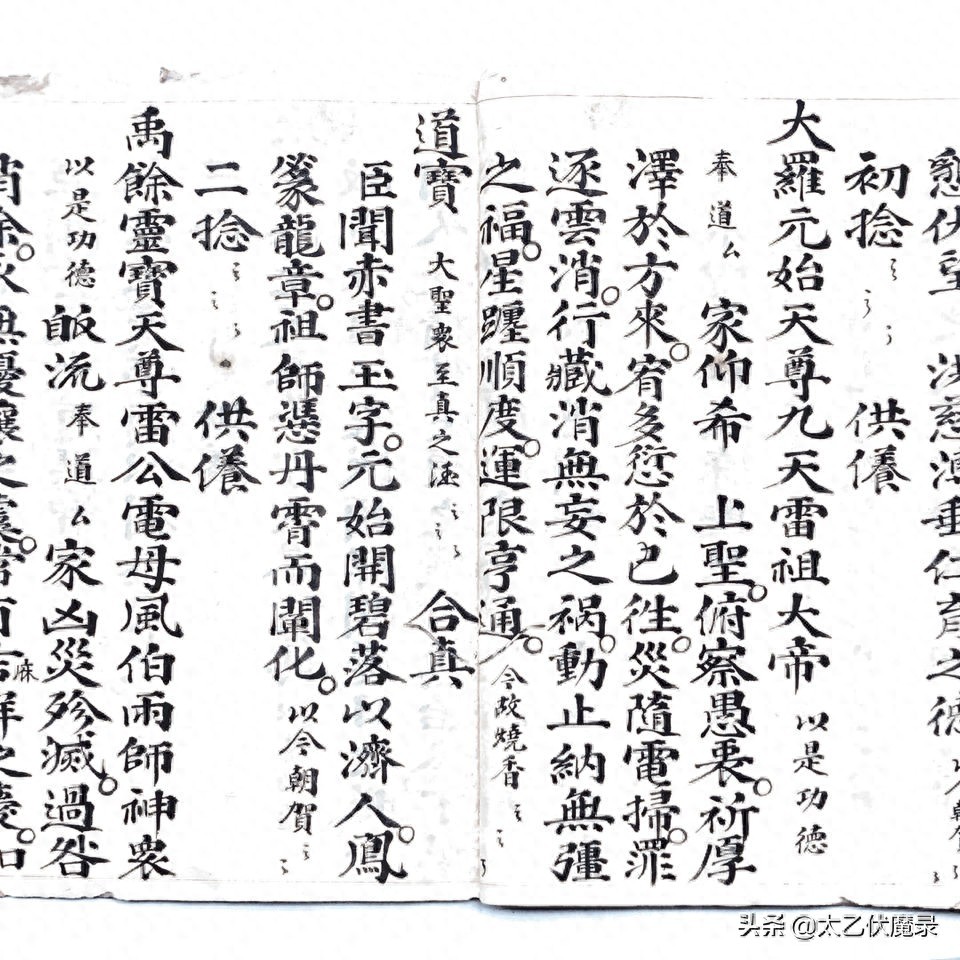 懇伏望　洪慈溥垂仁育之德以今朝賀
初捻　供養
大羅元始天尊九天雷祖大帝　以是功德
奉道厶　家仰希　上聖。俯察愚衷。祈厚
澤於方來。宥多愆於已往。災隨電掃。罪
逐雲消。行藏消無妄之禍。動止納無疆
之福。星躔順度。運限亨通。今故燒香
道寶　大聖衆至真之德　合真
臣聞赤書玉字。元始開碧落以濟人。鳳
篆龍章。祖師憑丹霄而闡化。以今朝賀
二捻　供養
禹餘靈寶天尊雷公電母風伯雨師神衆
以是功德　皈流　奉道厶　家凶災殄滅。過咎
消除。永無憂之。常有麻吉祥之。
头条 @太乙伏魔录